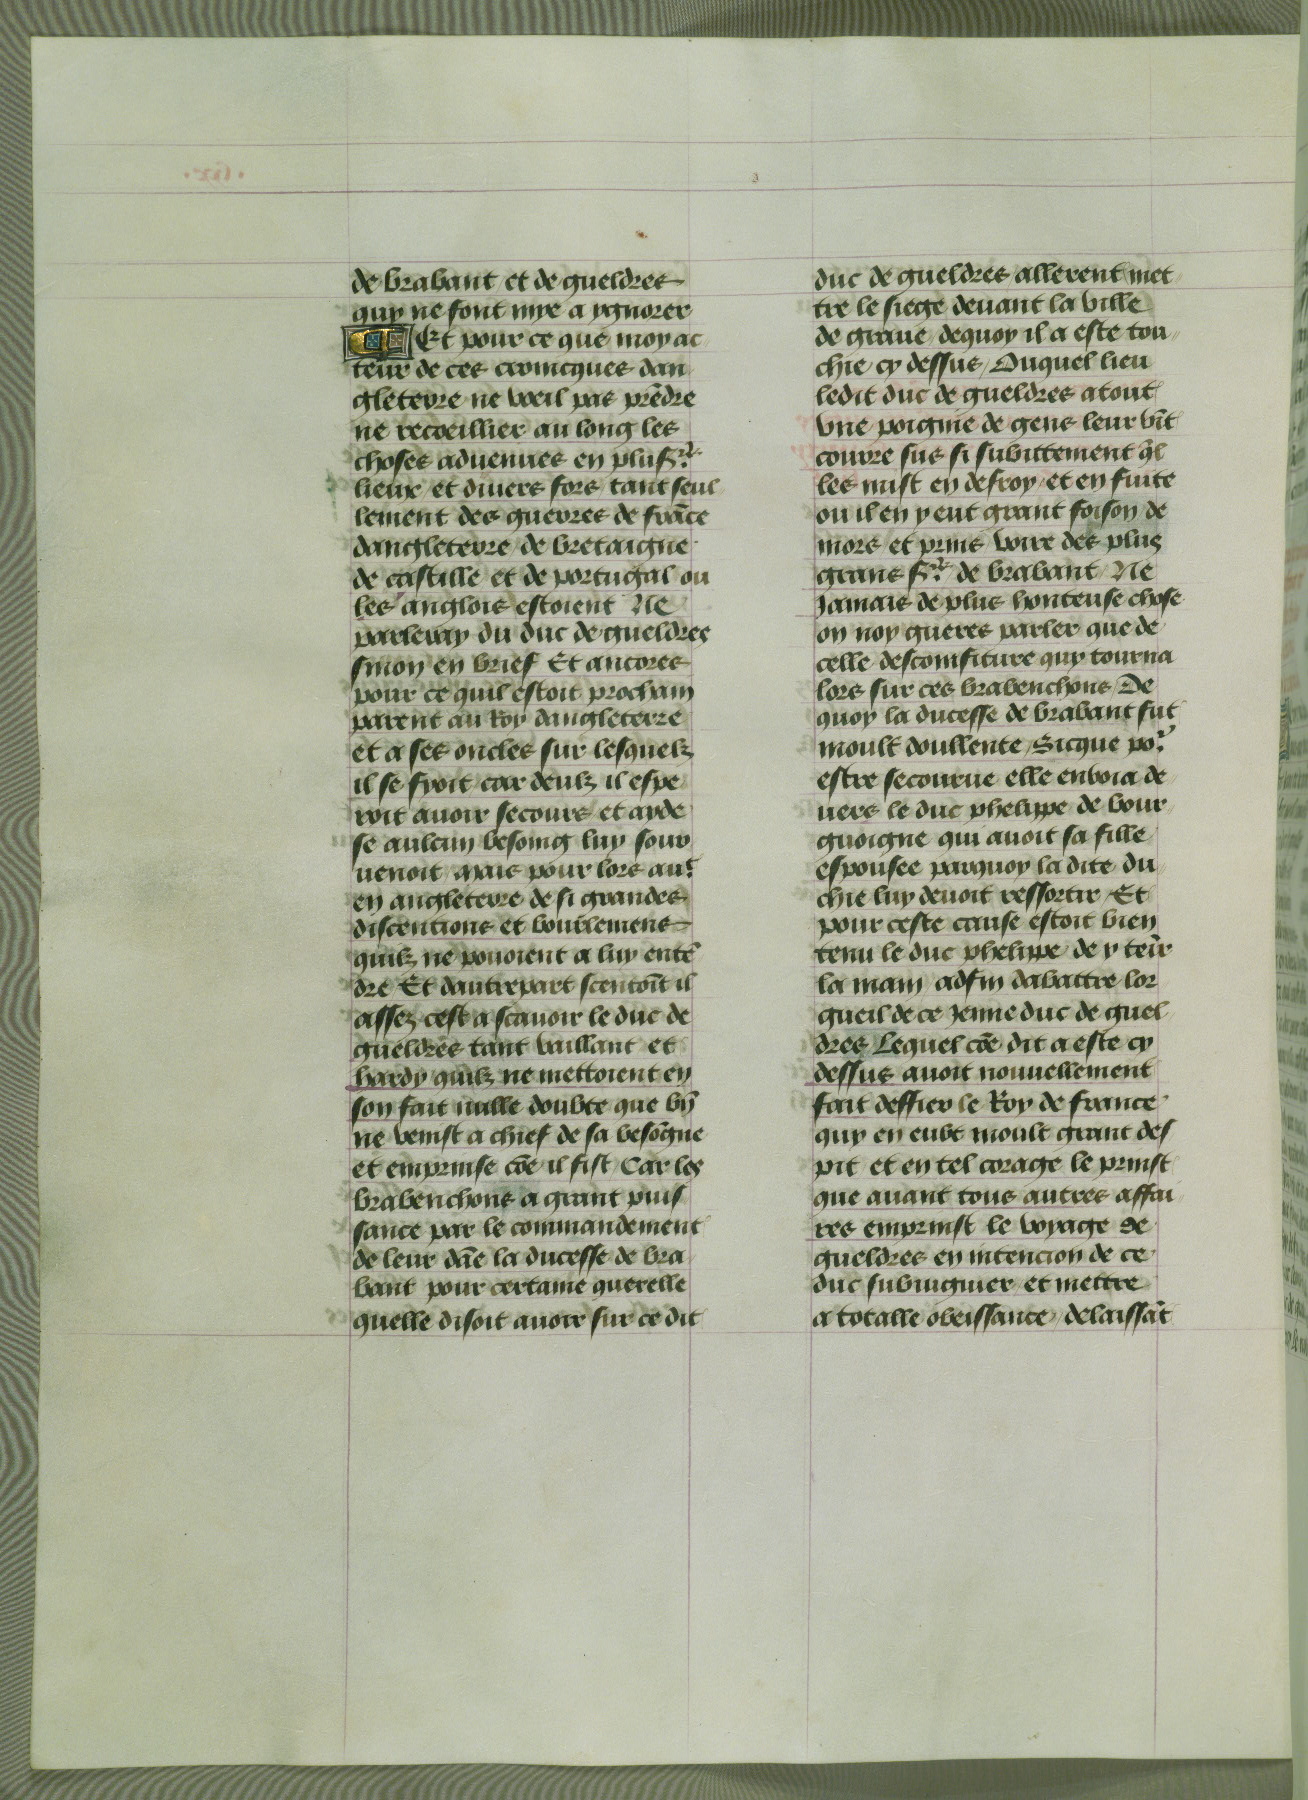 de brabant et de gueldres
quy ne font mye a ygnorer
Et pour ce que moy ac
teur de ces cronicques dan
gleterre ne voeil pas prẽdre
ne recoeillier au long les
choses aduenues en plus.rs
lieux et diuers fors tant seul
lement des guerres de frãce
dangleterre de bretaigne
de castille et de portugal ou
les anglois estoient Ne
parleray du duc de gueldres
sinon en brief Et ancores
pour ce quil estoit prochain
parent au Roy dangleterre
et a ses oncles sur lesquelz
il se fyoit car deulz il espe
roit auoir secours et ayde
se aulcun besoing luy sour
uenoit mais pour lors au.t
en angleterre de si grandes
discentions et tourblemens
quilz ne pouoient a luy entẽ
dre Et dautrepart sentoiẽt il
assez cest a scauoir le duc de
gueldres tant vaillant et
hardy quilz ne mettoient en
son fait nulle doubte que bñ
ne venist a chief de sa besõgne
et emprinse cõe il fist Car les
brabenchons a grant puis
sance par le commandement
de leur dãe la ducesse de bra
bant pour certaine querelle
quelle disoit auoir sur ce dit
duc de gueldres allerent met
tre le siege deuant la ville
de graue dequoy il a este tou
chie cy dessus Ouquel lieu
ledit duc de gueldres atout
vne poignie de gens leur vĩt
courre sus si subittement q̃l
les mist en desroy et en fuite
ou il en y eut grant foison de
mors et prins voire des plus
grans s.rs de brabant Ne
Jamais de plus honteuse chose
on noy gueres parler que de
celle desconfiture quy tourna
lors sur ces brabenchons De
quoy la ducesse de brabant fut
moult doullente Sicque po.r
estre secourue elle enuoia de
uers le duc phelippe de bour
guoigne qui auoit sa fille
espousee parquoy la dite du
chie luy deuoit ressortir Et
pour ceste cause estoit bien
tenu le duc phelippe de y teñr
la main adfin dabattre lor
gueil de ce Jenne duc de guel
dres Lequel cõe dit a este cy
dessus auoit nouuellement
fait deffier le Roy de france
quy en eubt moult grant des
pit et en tel corage le prinst
que auant tous autres affai
res emprinst le voyage de
gueldres en intencion de ce
duc subiuguier et mettre
a totalle obeissance delaissãt